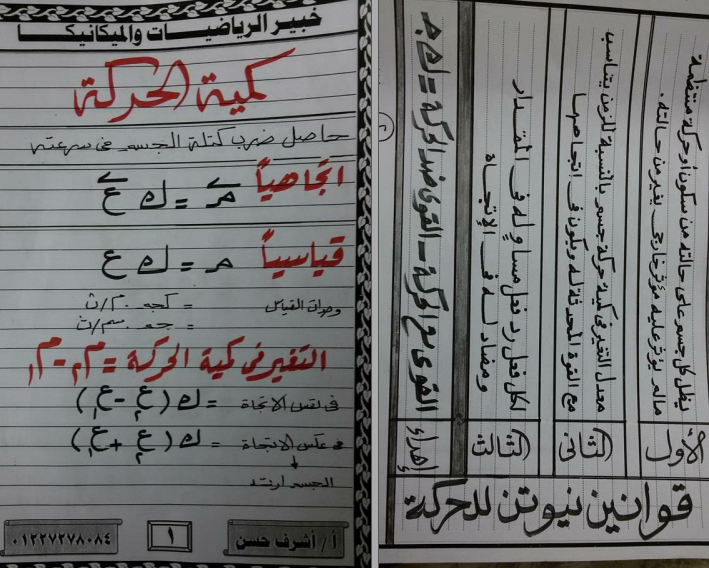 خبير الرياضيات والميكانيكا
كمية الحركة
حاصل ضرب كتلة الجسم فى سرعته
اتجاهياً مَ = ك عَ
قياسياً م = ك ع
وحدات القياس = كجم . م/ث
= جم . سم/ث
التغير فى كمية الحركة = م٢ - م١
فى نفس الاتجاة = ك (ع٢ - ع١)
فى عكس الاتجاة = ك (ع٢ + ع١)
الجسم ارتد
أ / أشرف حسن
١
٠١٢٢٧٢٧٨٠٨٤
قوانين نيوتن للحركة
الأول
يظل كل جسم على حالته من سكون أو حركة منتظمة
مالم يؤثر عليه مؤثر خارجى يغير من حالته .
الثانى
معدل التغير فى كمية حركة جسم بالنسبة للزمن يتناسب
مع القوة المحدثة له ويكون فى اتجاهها
الثالث
لكل فعل رد فعل مساوٍ له فى المقدار
ومضاد له فى الإتجاة
القوى مع الحركة - القوى ضد الحركة = ك جـ
٢